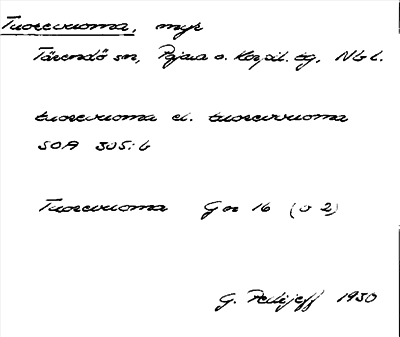 Tuorevuoma, myr
Tärendö sn, Pajala o. Korpil. tg, Nbl.
tuorevuoma el. tuorevvuoma
SOA 305:6
Tuorevuoma Gen 16 (o 2)
G. Pellijeff 1950